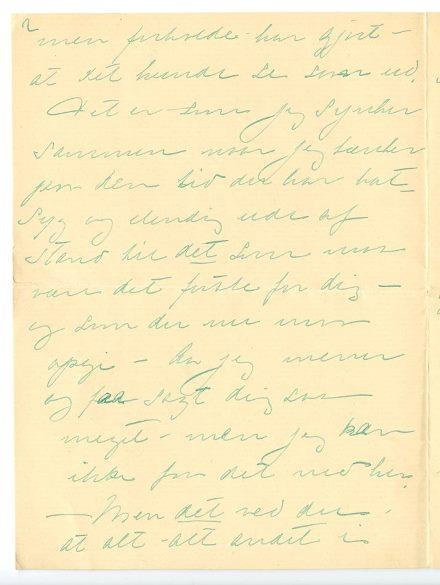 2
men forhvede har gjort –
at det kunde se saar ud.
Det er som jeg synker
sammen naar jeg tænker
paa den tid du har hat –
syg og elendig ude af
Stand til det som maa
være det første for dig –
og som du nu maa
opgi – Aa jeg mener
og faa sagt dig saa
meget – men jeg kan
ikke faa det ned her.
– Men det ved du,
at alt alt andet is